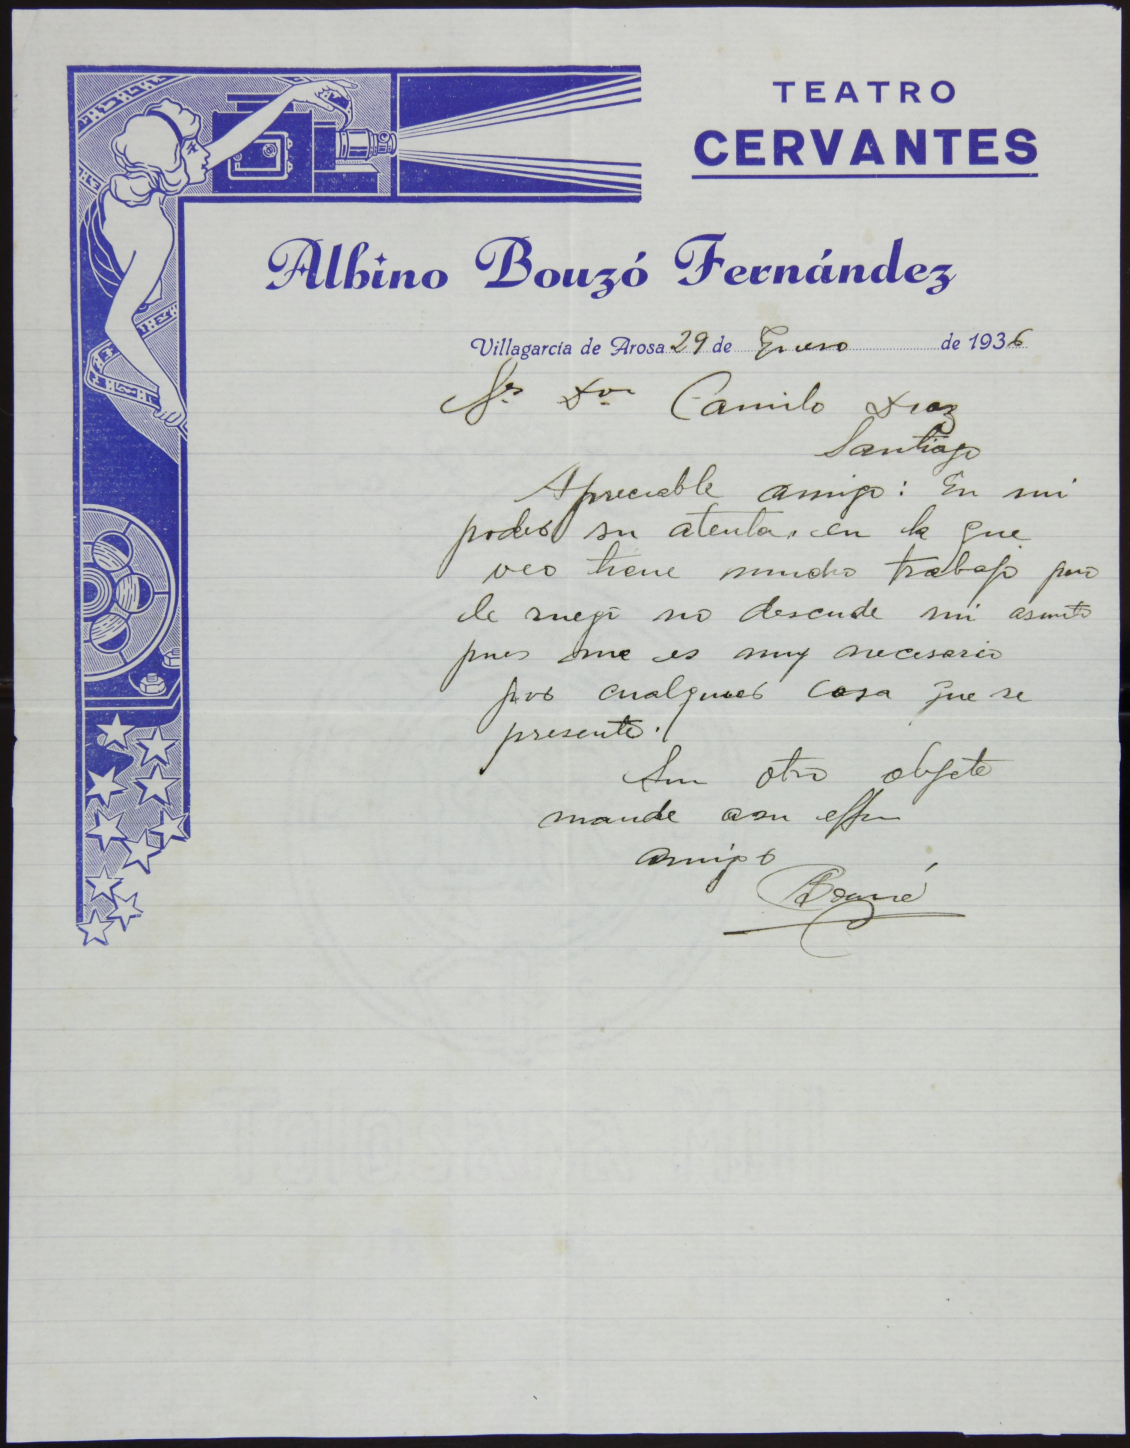 TEATRO
CERVANTES
Albino Bouzó Fernández
Villagarcía de Arosa 29 de Enero de 1936
Sr. Don Camilo Diaz
Santiago
Apreciable amigo: En mi
poder su atenta, en la que
veo tiene mucho trabajo pero
le ruego no descuide mi asunto
pues me es muy necesario
por cualquier cosa que se
presente.
Sin otro objeto
mande a su
amigo
ABouzó